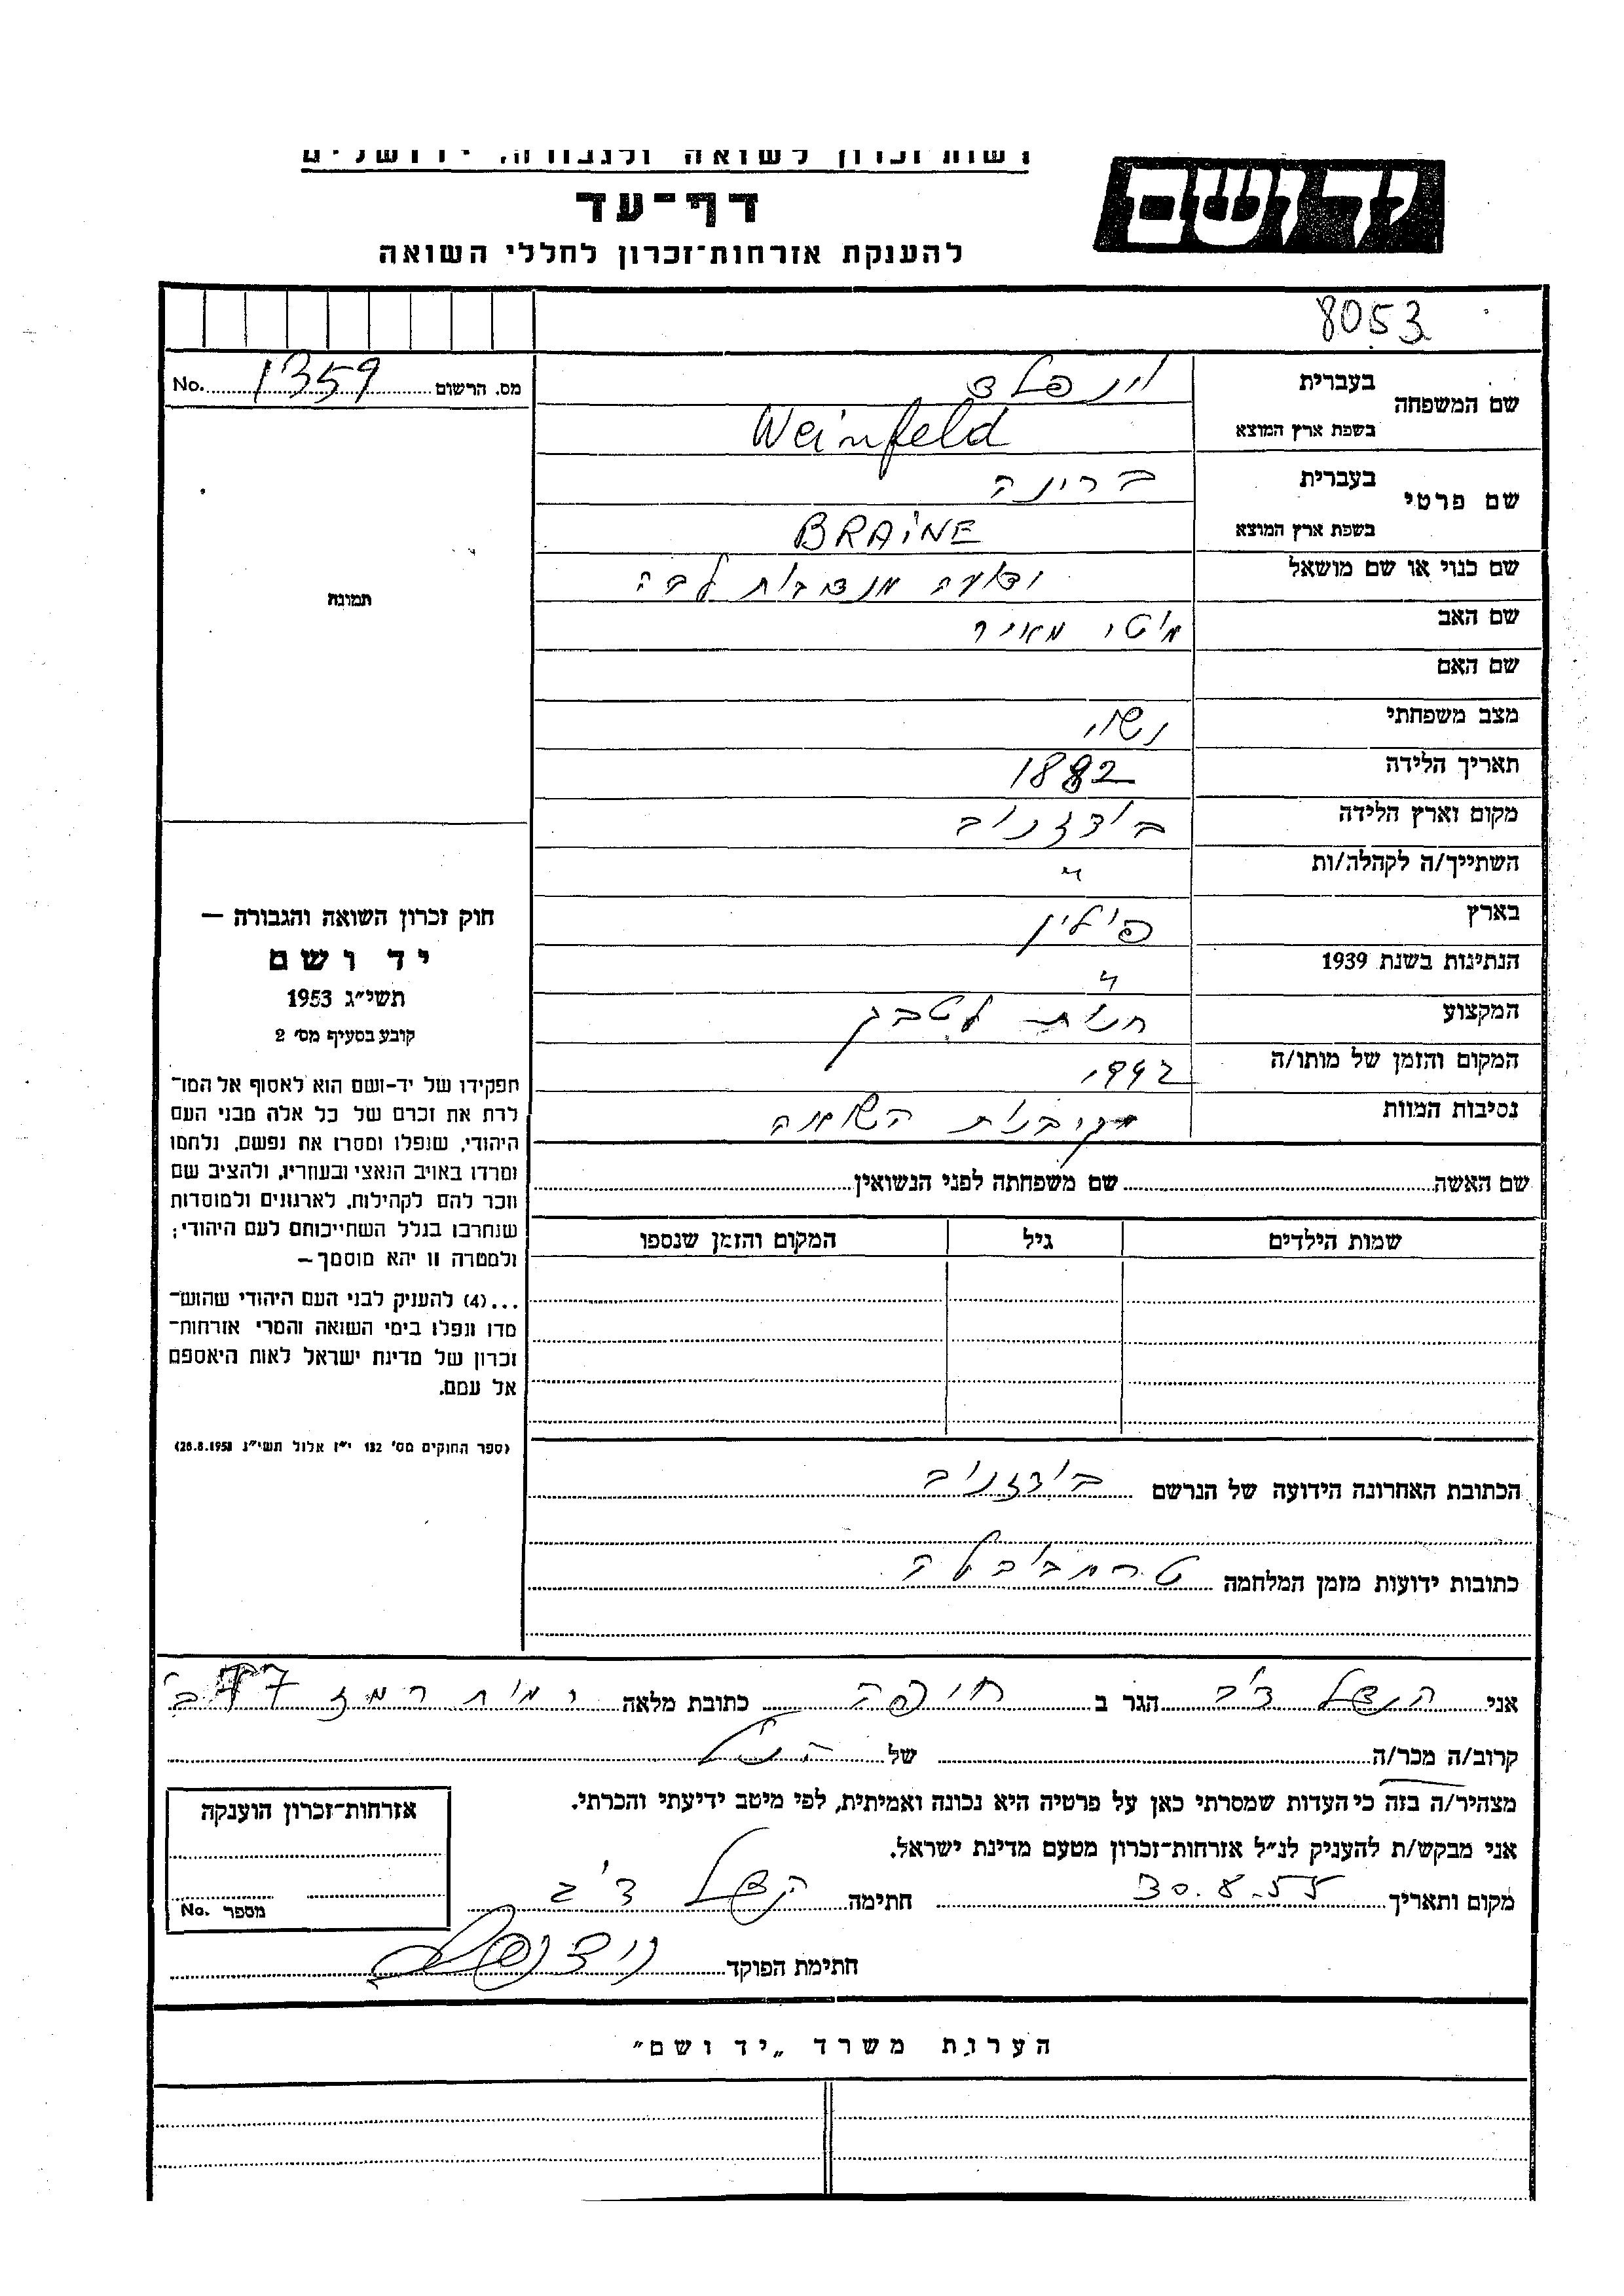 יד ושם
רשות זכרון לשואה ולגבורה, ירושלים
דף-עד
להענקת אזרחות-זכרון לחללי השואה
8053
מס. הרשום 1359 No.
שם המשפחה
בעברית וינפלד
בשפת ארץ המוצא Weinfeld
שם פרטי
בעברית ברינה
בשפת ארץ המוצא BRAiNE
שם כנוי או שם מושאל
שם האב מוטי מאיר
שם האם
מצב משפחתי נשוי
תאריך הלידה 1882
מקום וארץ הלידה בודזנוב
השתייך/ה לקהלה/ות "
בארץ פולין
הנתינות בשנת 1939 "
המקצוע חנות
המקום והזמן של מותו/ה 1942
נסיבות המוות מקרבנות השואה
שם האשה שם משפחתה לפני הנשואין
שמות הילדים גיל המקום והזמן שנספו
הכתובת האחרונה הידועה של הנרשם בודזנוב
כתובות ידועות מזמן המלחמה
תמונה
חוק זכרון השואה והגבורה —
יד ושם
תשי״ג 1953
קובע בסעיף מס׳ 2
תפקידו של יד-ושם הוא לאסוף אל המו־
לדת את זכרם של כל אלה מבני העם
היהודי, שנפלו ומסרו את נפשם, נלחמו
ומרדו באויב הנאצי ובעוזריו, ולהציב שם
וזכר להם לקהילות, לארגונים ולמוסדות
שנחרבו בגלל השתייכותם לעם היהודי;
ולמטרה זו יהא מוסמך —
...(4) להעניק לבני העם היהודי שהוש־
מדו ונפלו בימי השואה והמרי אזרחות־
זכרון של מדינת ישראל לאות היאספם
אל עמם.
(ספר החוקים מס׳ 132 י״ז אלול תשי״ג 28.8.1953)
אני הנדל דב הגר ב חיפה כתובת מלאה רמות רמז
קרוב/ה מכר/ה של הנ״ל
מצהיר/ה בזה כי העדות שמסרתי כאן על פרטיה היא נכונה ואמיתית, לפי מיטב ידיעתי והכרתי.
אני מבקש/ת להעניק לנ״ל אזרחות-זכרון מטעם מדינת ישראל.
מקום ותאריך 30.8.55 חתימה הנדל דב
חתימת הפוקד
אזרחות-זכרון הוענקה
מספר No.
הערות משרד „יד ושם״